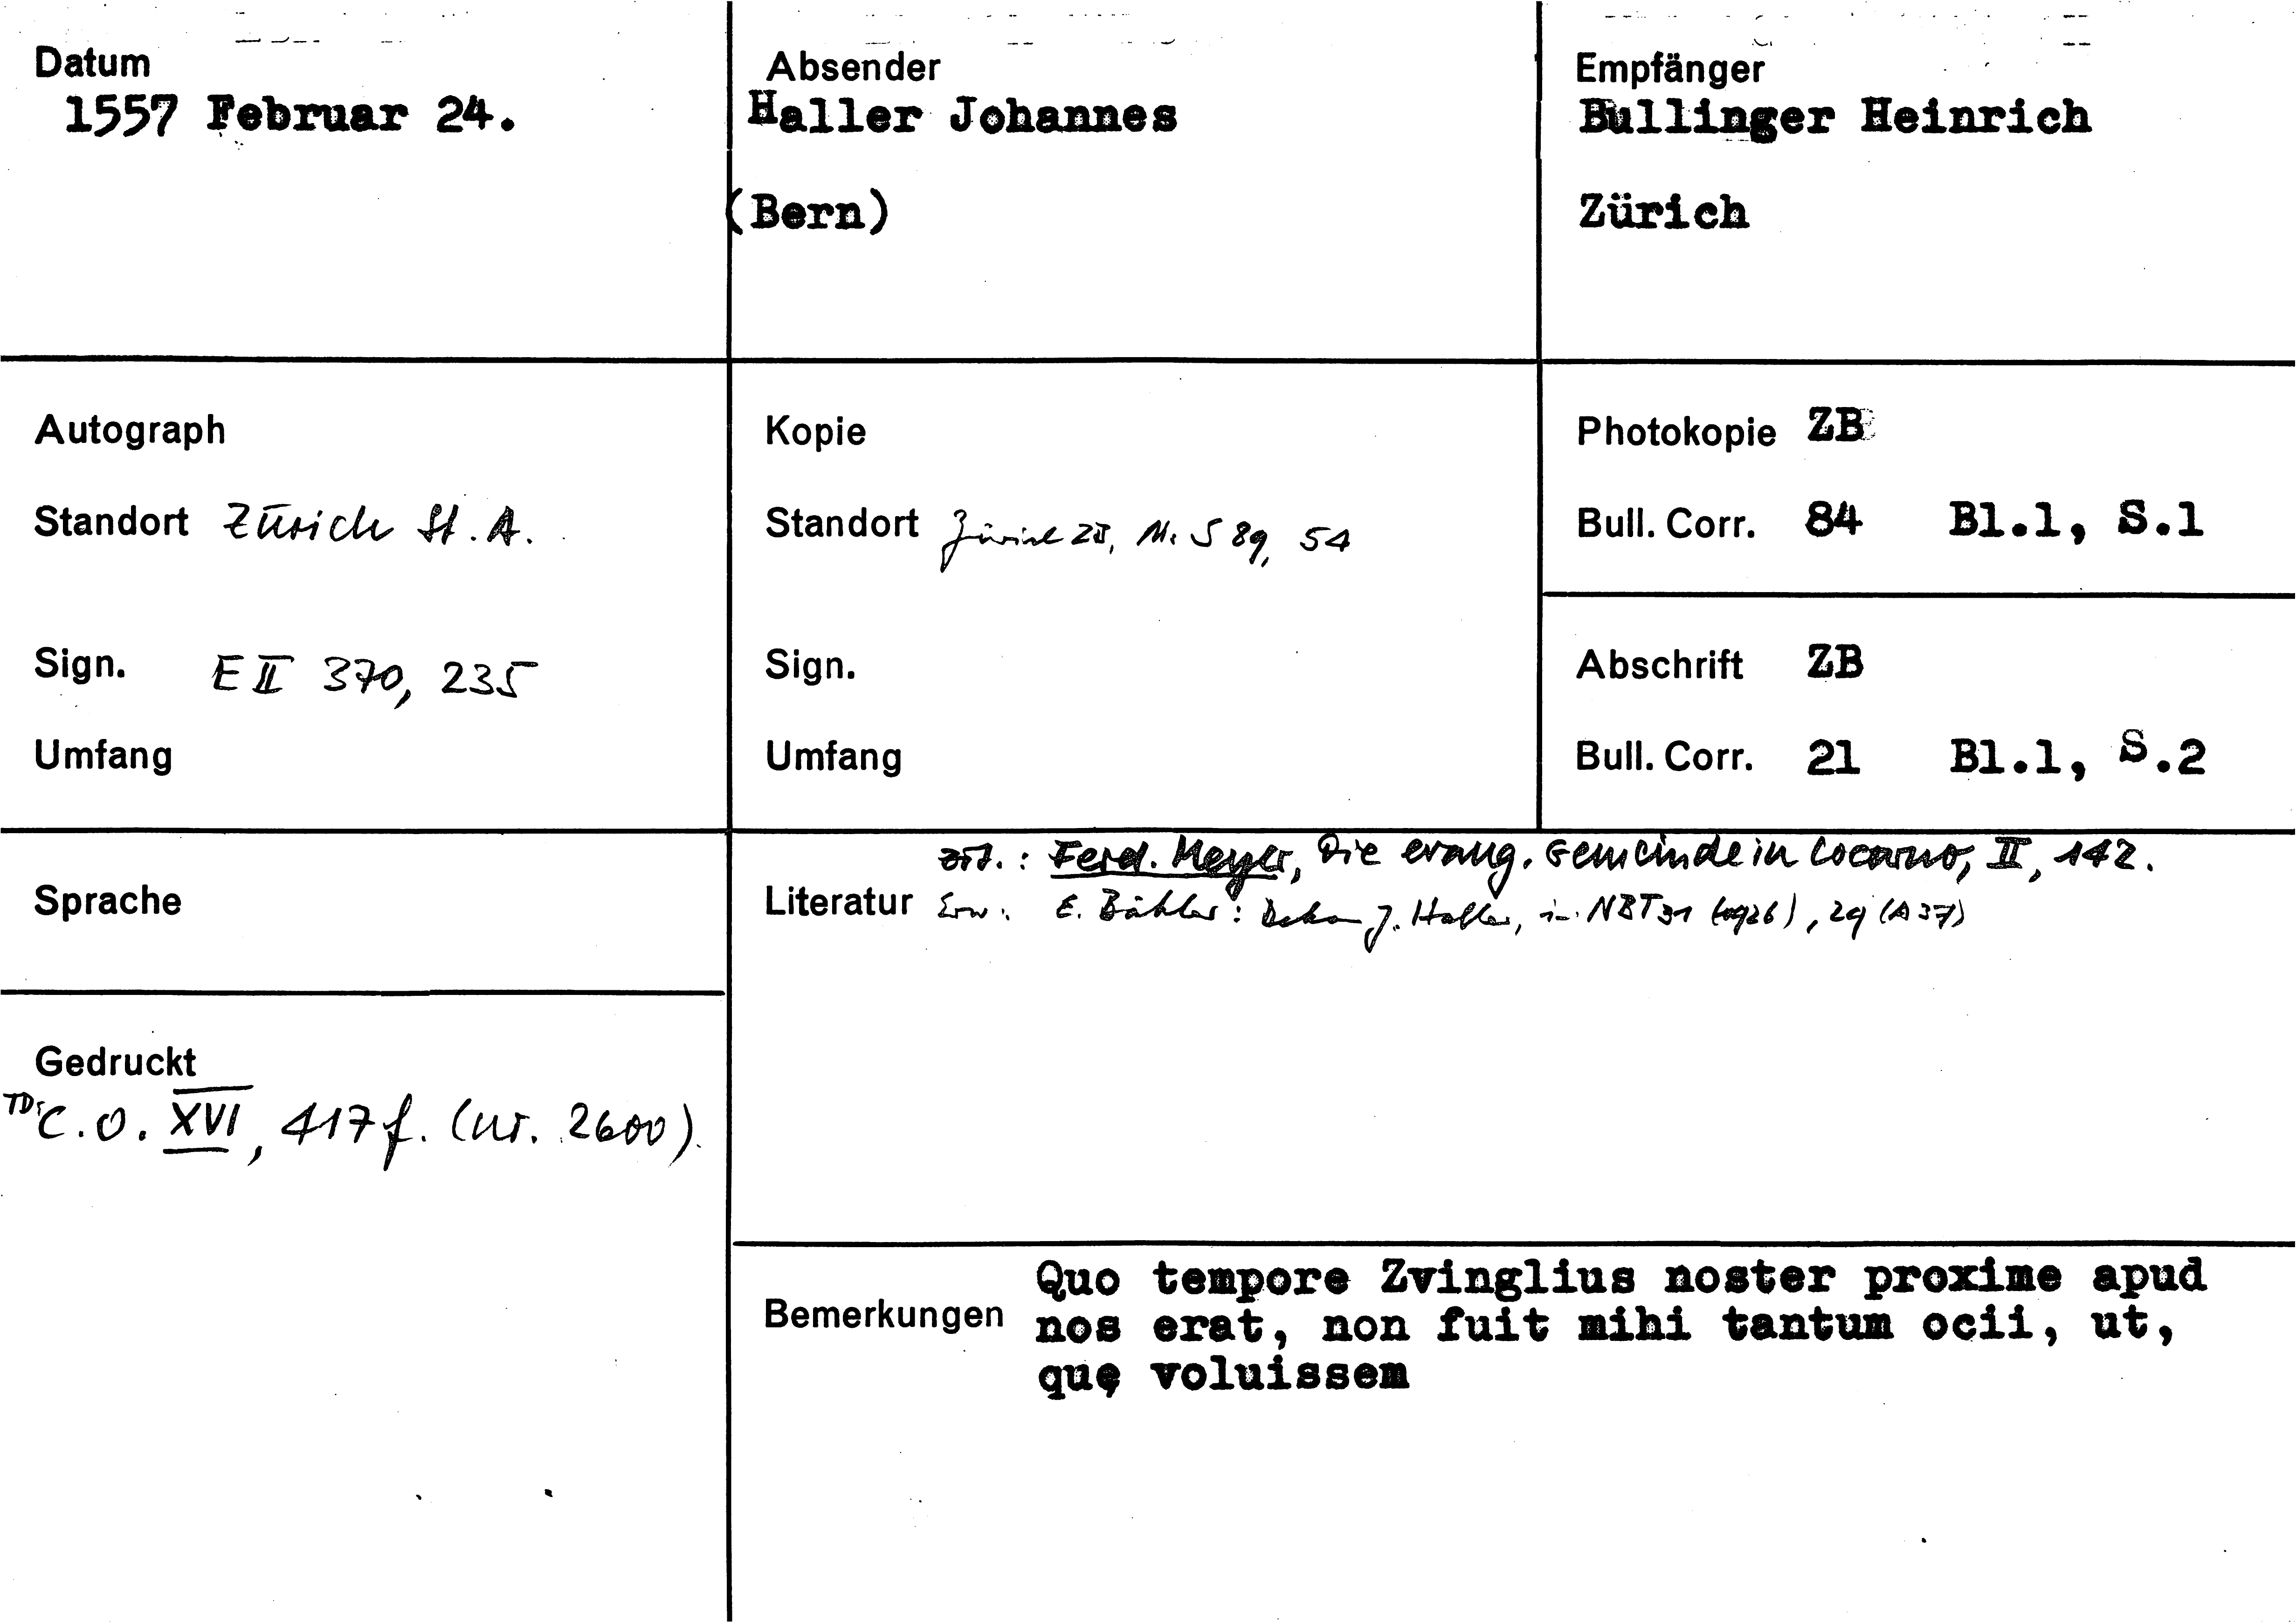 Datum
1557 Februar 24.
Absender
Haller Johannes
(Bern)
Empfänger
Bullinger Heinrich
Zürich
Autograph
Standort Zürich St. A.
Sign. E II 370, 235
Umfang
Kopie
Standort Zürich ZB, Ms S 89, 54
Sign.
Umfang
Photokopie ZB
Bull. Corr. 84 Bl.1, S.1
Abschrift ZB
Bull. Corr. 21 Bl.1, S.2
Sprache
Gedruckt
TD: C.O. XVI, 417 f. (Nr. 2600).
zit.: Ferd. Meyer, Die evang. Gemeinde in Locarno, II, 142.
Literatur Erw: E. Bähler: Dekan J. Haller, in: NBT 31 (1926), 29 (A 37)
Bemerkungen
Quo tempore Zvinglius noster proxime apud
nos erat, non fuit mihi tantum ocii, ut,
quę voluissem